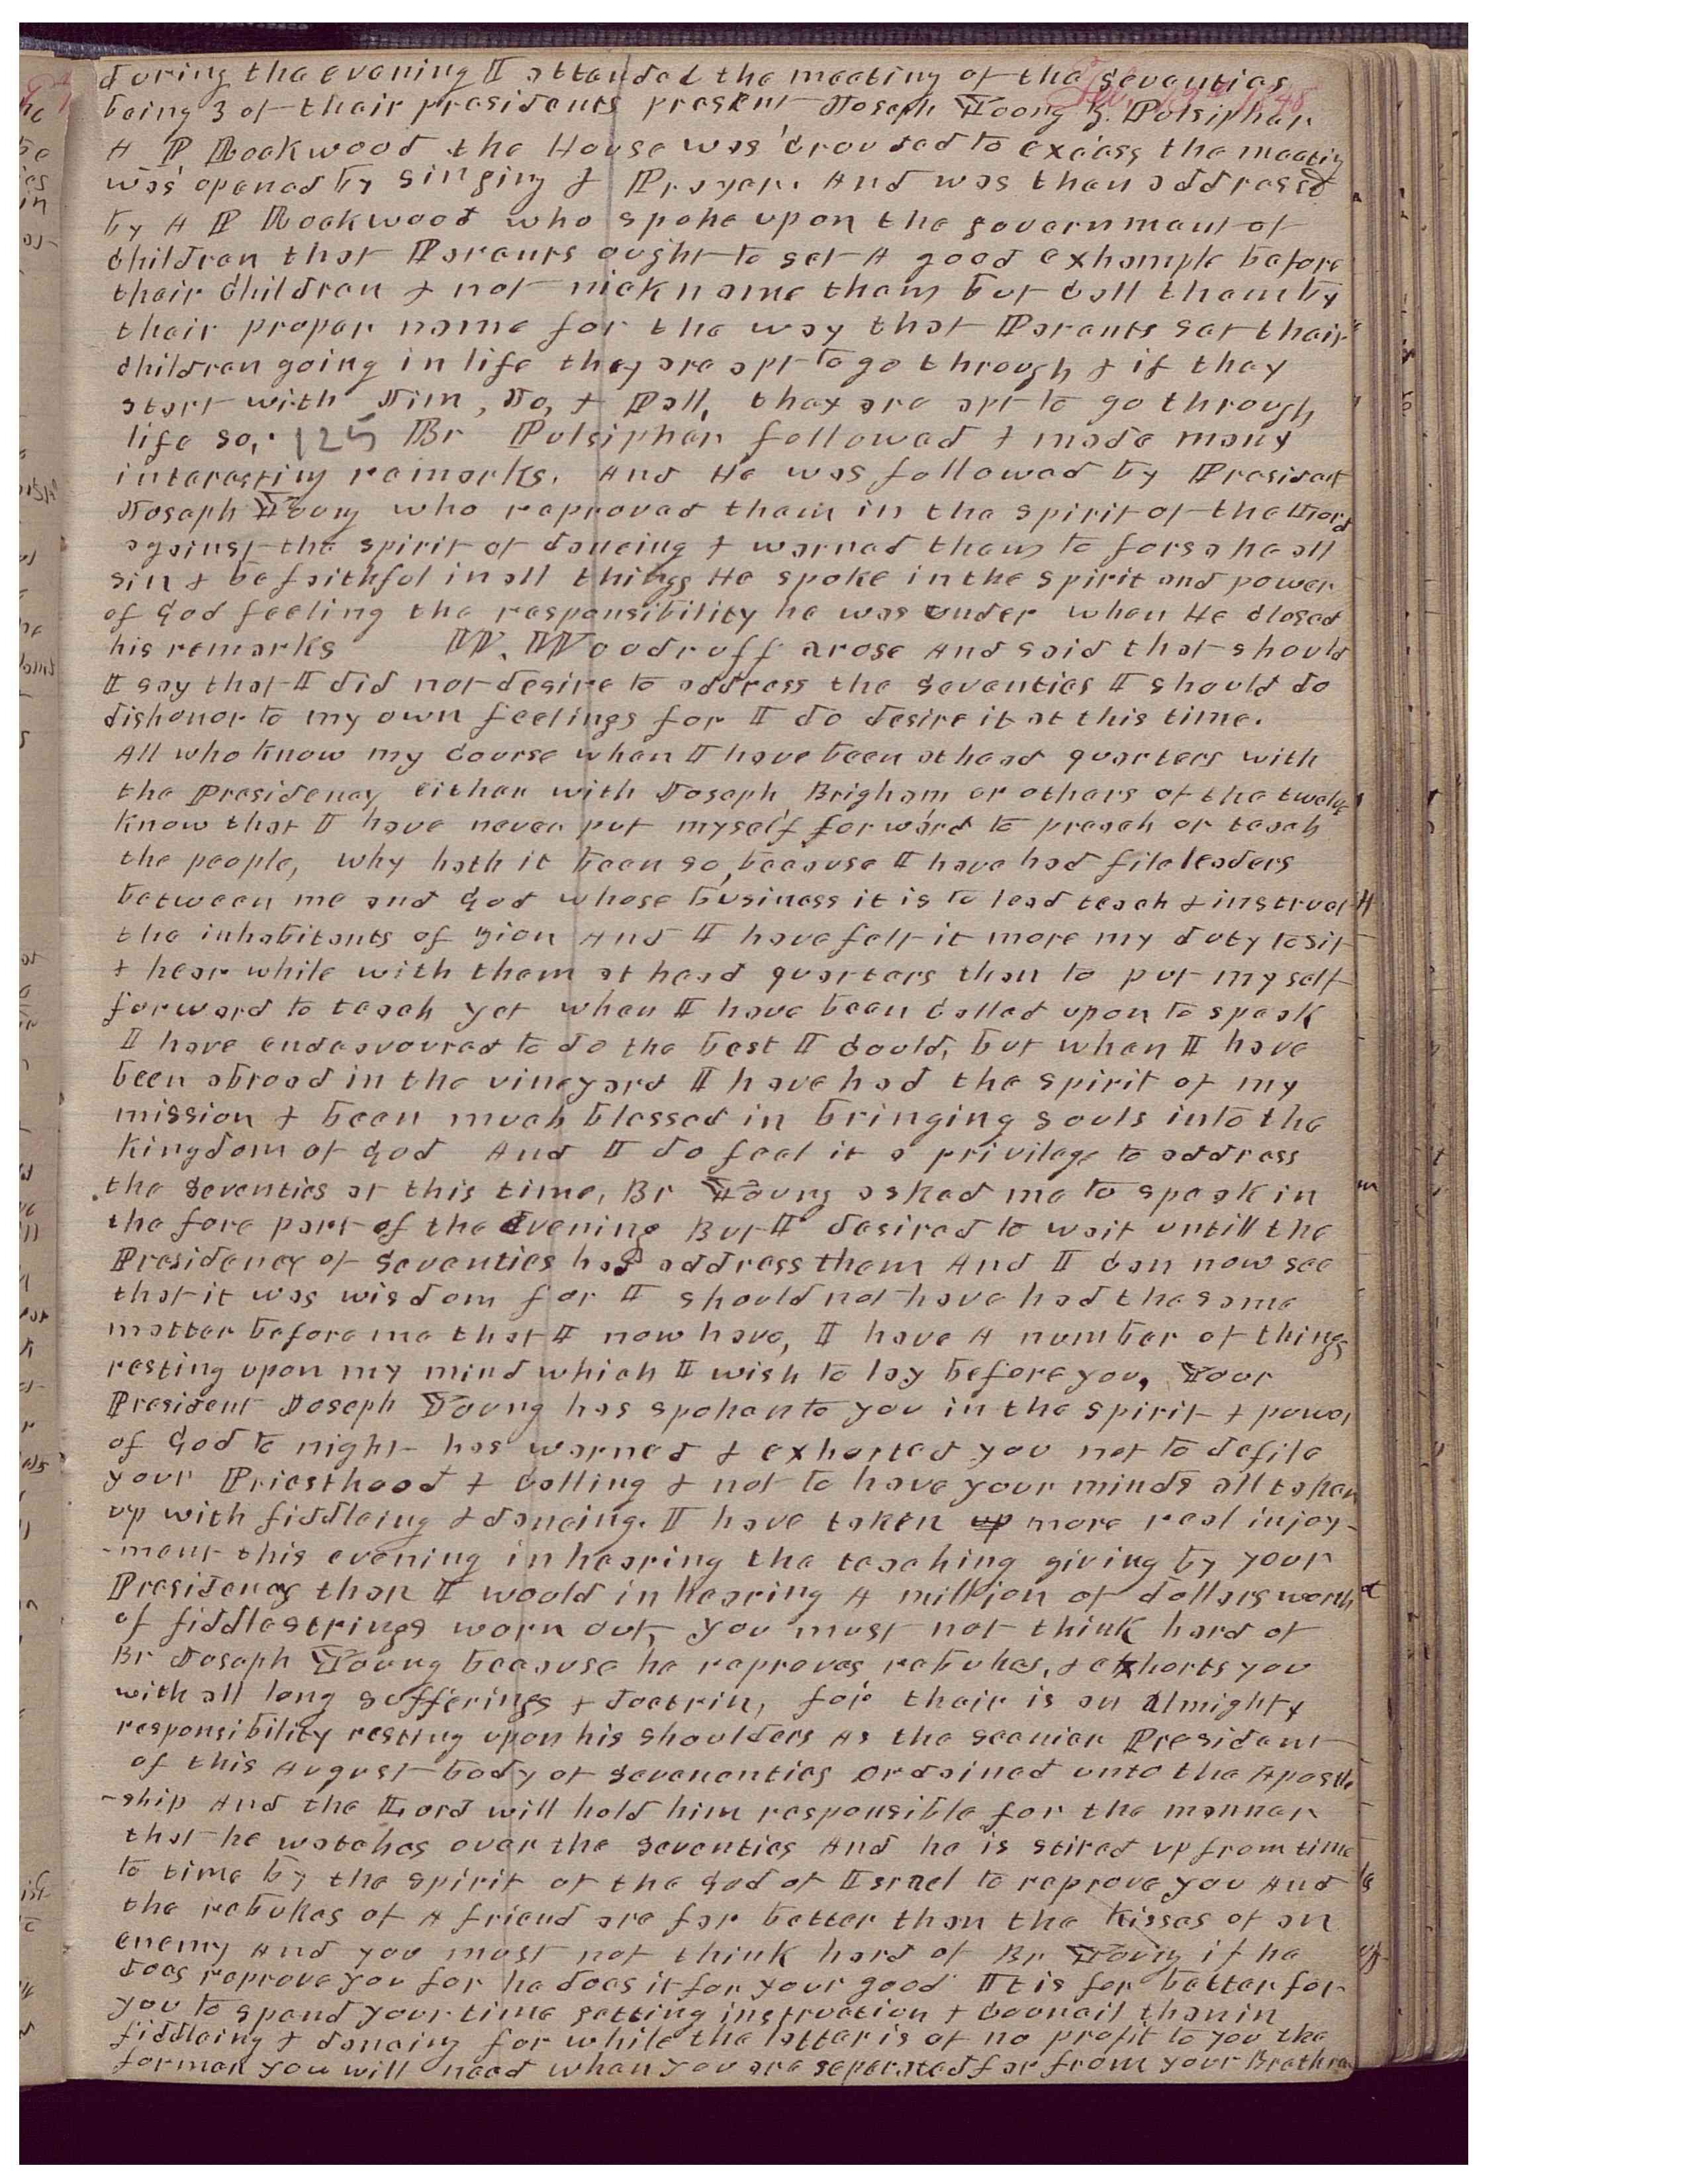 during the evening I attended the meeting of the seventies
being 3 of their presidents present Joseph Young Z. Pulsipher
A P Rockwood the House was crouded to excess the meeting
was opened by singing & Prayer. And was then addressed
by A P Rockwood who spoke upon the government of
children that Parents ought to set A good exhample before
their children & not nickname them but call them by
their proper name for the way that Parents set their
children going in life they are apt to go through & if they
start with Jim, Jo, & Poll, they are apt to go through
life so,. 125 Br Pulsipher followed & made many
interesting remarks. And He was followed by President
Joseph Young who reproved them in the spirit of the Lord
against the spirit of dancing & warned them to forsake all
sin & be faithful in all things He spoke in the spirit and power
of God feeling the responsibility he was under when He closed
his remarks W. Woodruff arose And said that should
I say that I did not desire to address the Seventies I should do
dishonor to my own feelings for I do desire it at this time.
All who know my course when I have been at head quarters with
the Presidency either with Joseph Brigham or others of the twelve
know that I have never put myself forward to preach or teach
the people, why hath it been so, because I have had file leaders
between me and God whose business it is to lead teach & instruct
the inhabitants of Zion And I have felt it more my duty to sit
& hear while with them at head quarters than to put my self
forward to teach yet when I have been called upon to speak
I have endeavoured to do the best I could, but when I have
been abroad in the vineyard I have had the spirit of my
mission & been much blessed in bringing souls into the
kingdom of God And I do feel it a privilege to address
the Seventies at this time, Br Young asked me to speak in
the fore part of the Evening But I desired to wait untill the
Presidency of Seventies had address them And I can now see
that it was wisdom for I should not have had the same
matter before me that I now have, I have A number of things
resting upon my mind which I wish to lay before you, Your
President Joseph Young has spoken to you in the spirit & power
of God to night has warned & exhorted you not to defile
your Priesthood & calling & not to have your minds all taken
up with fiddleing & dancing. I have taken up more real injoy-
-ment this evening in hearing the teaching giving by your
Presidency than I would in hearing A million of dollars worth
of fiddlestrings worn out, you must not think hard of
Br Joseph Young because he reproves rebukes, & exhorts you
with all long sufferings & doctrin, for their is an Almighty
responsibility resting upon his shoulders As the seenier President
of this August body of Sevenenties ordained unto the Apostle
-ship And the Lord will hold him responsible for the manner
that he watches over the Seventies And he is stired up from time
to time by the spirit of the God of Israel to reprove you And
the rebukes of A friend are far better than the kisses of an
enemy And you must not think hard of Br Young if he
does reprove you for he does it for your good It is far better for
you to spend your time getting instruction & councił than in
fiddleing & dancing for while the latter is of no profit to you the
former you will need when you are seperated far from your Brethren